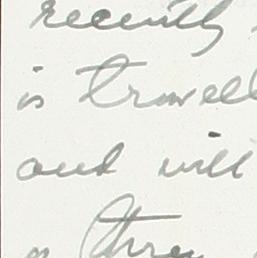 recently
is travell
and will
a three